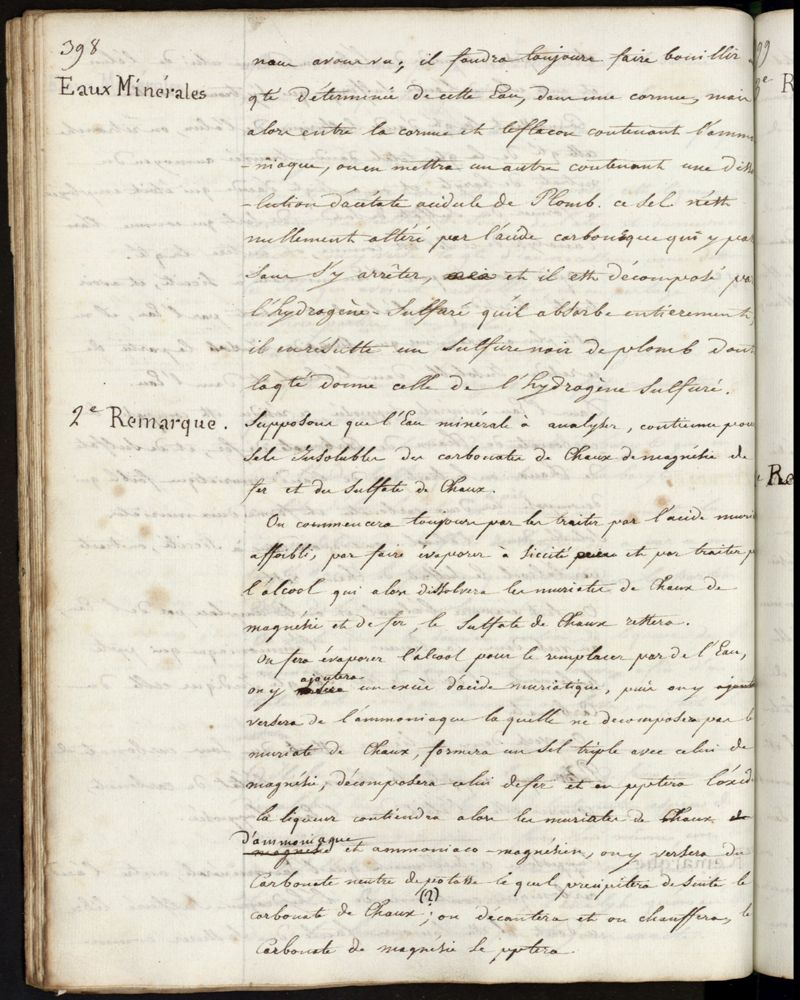 398
Eaux Minérales
nous avons vu; il faudra toujours faire bouillir
qté déterminée de cette Eau, dans une cornue, mais
alors entre la cornue et le flacon contenant l'ammo
-niaque, on en mettra un autre contenant une disso
-lution d'acétate acidule de Plomb. ce sel n'est
nullement altéré par l'acide carbonique qui y passe
sans s'y arrêter, et il est décomposé par
l'hydrogène-Sulfuré qu'il absorbe entièrement,
il en résulte un Sulfure noir de plomb dont
la qté donne celle de l'hydrogène Sulfuré.
2e Remarque.
Supposons que l'Eau minérale à analyser, contienne pour
Sels insolubles des carbonates de Chaux de magnésie de
fer et du Sulfate de Chaux.
On commencera toujours par les traiter par l'acide muria
affoibli, par faire évaporer à siccité et par traiter p
l'alcool qui alors dissolvera les muriates de Chaux de
magnésie et de fer, le Sulfate de Chaux restera.
On fera évaporer l'alcool pour le remplacer par de l'Eau,
ajoutera
on y un excès d'acide muriatique, puis on y ajoute
versera de l'ammoniaque laquelle ne décomposera pas le
muriate de Chaux, formera un Sel triple avec celui de
magnésie, décomposera celui de fer et en pptera l'oxid
la liqueur contiendra alors les muriates de Chaux et
d'ammoniaque
magnésie et ammoniaco-magnésien, on y versera du
Carbonate neutre de potasse le quel précipitera de suite le
(?)
carbonate de Chaux; on décantera et on chauffera, le
Carbonate de magnésie se pptera.
99
3e R
Re